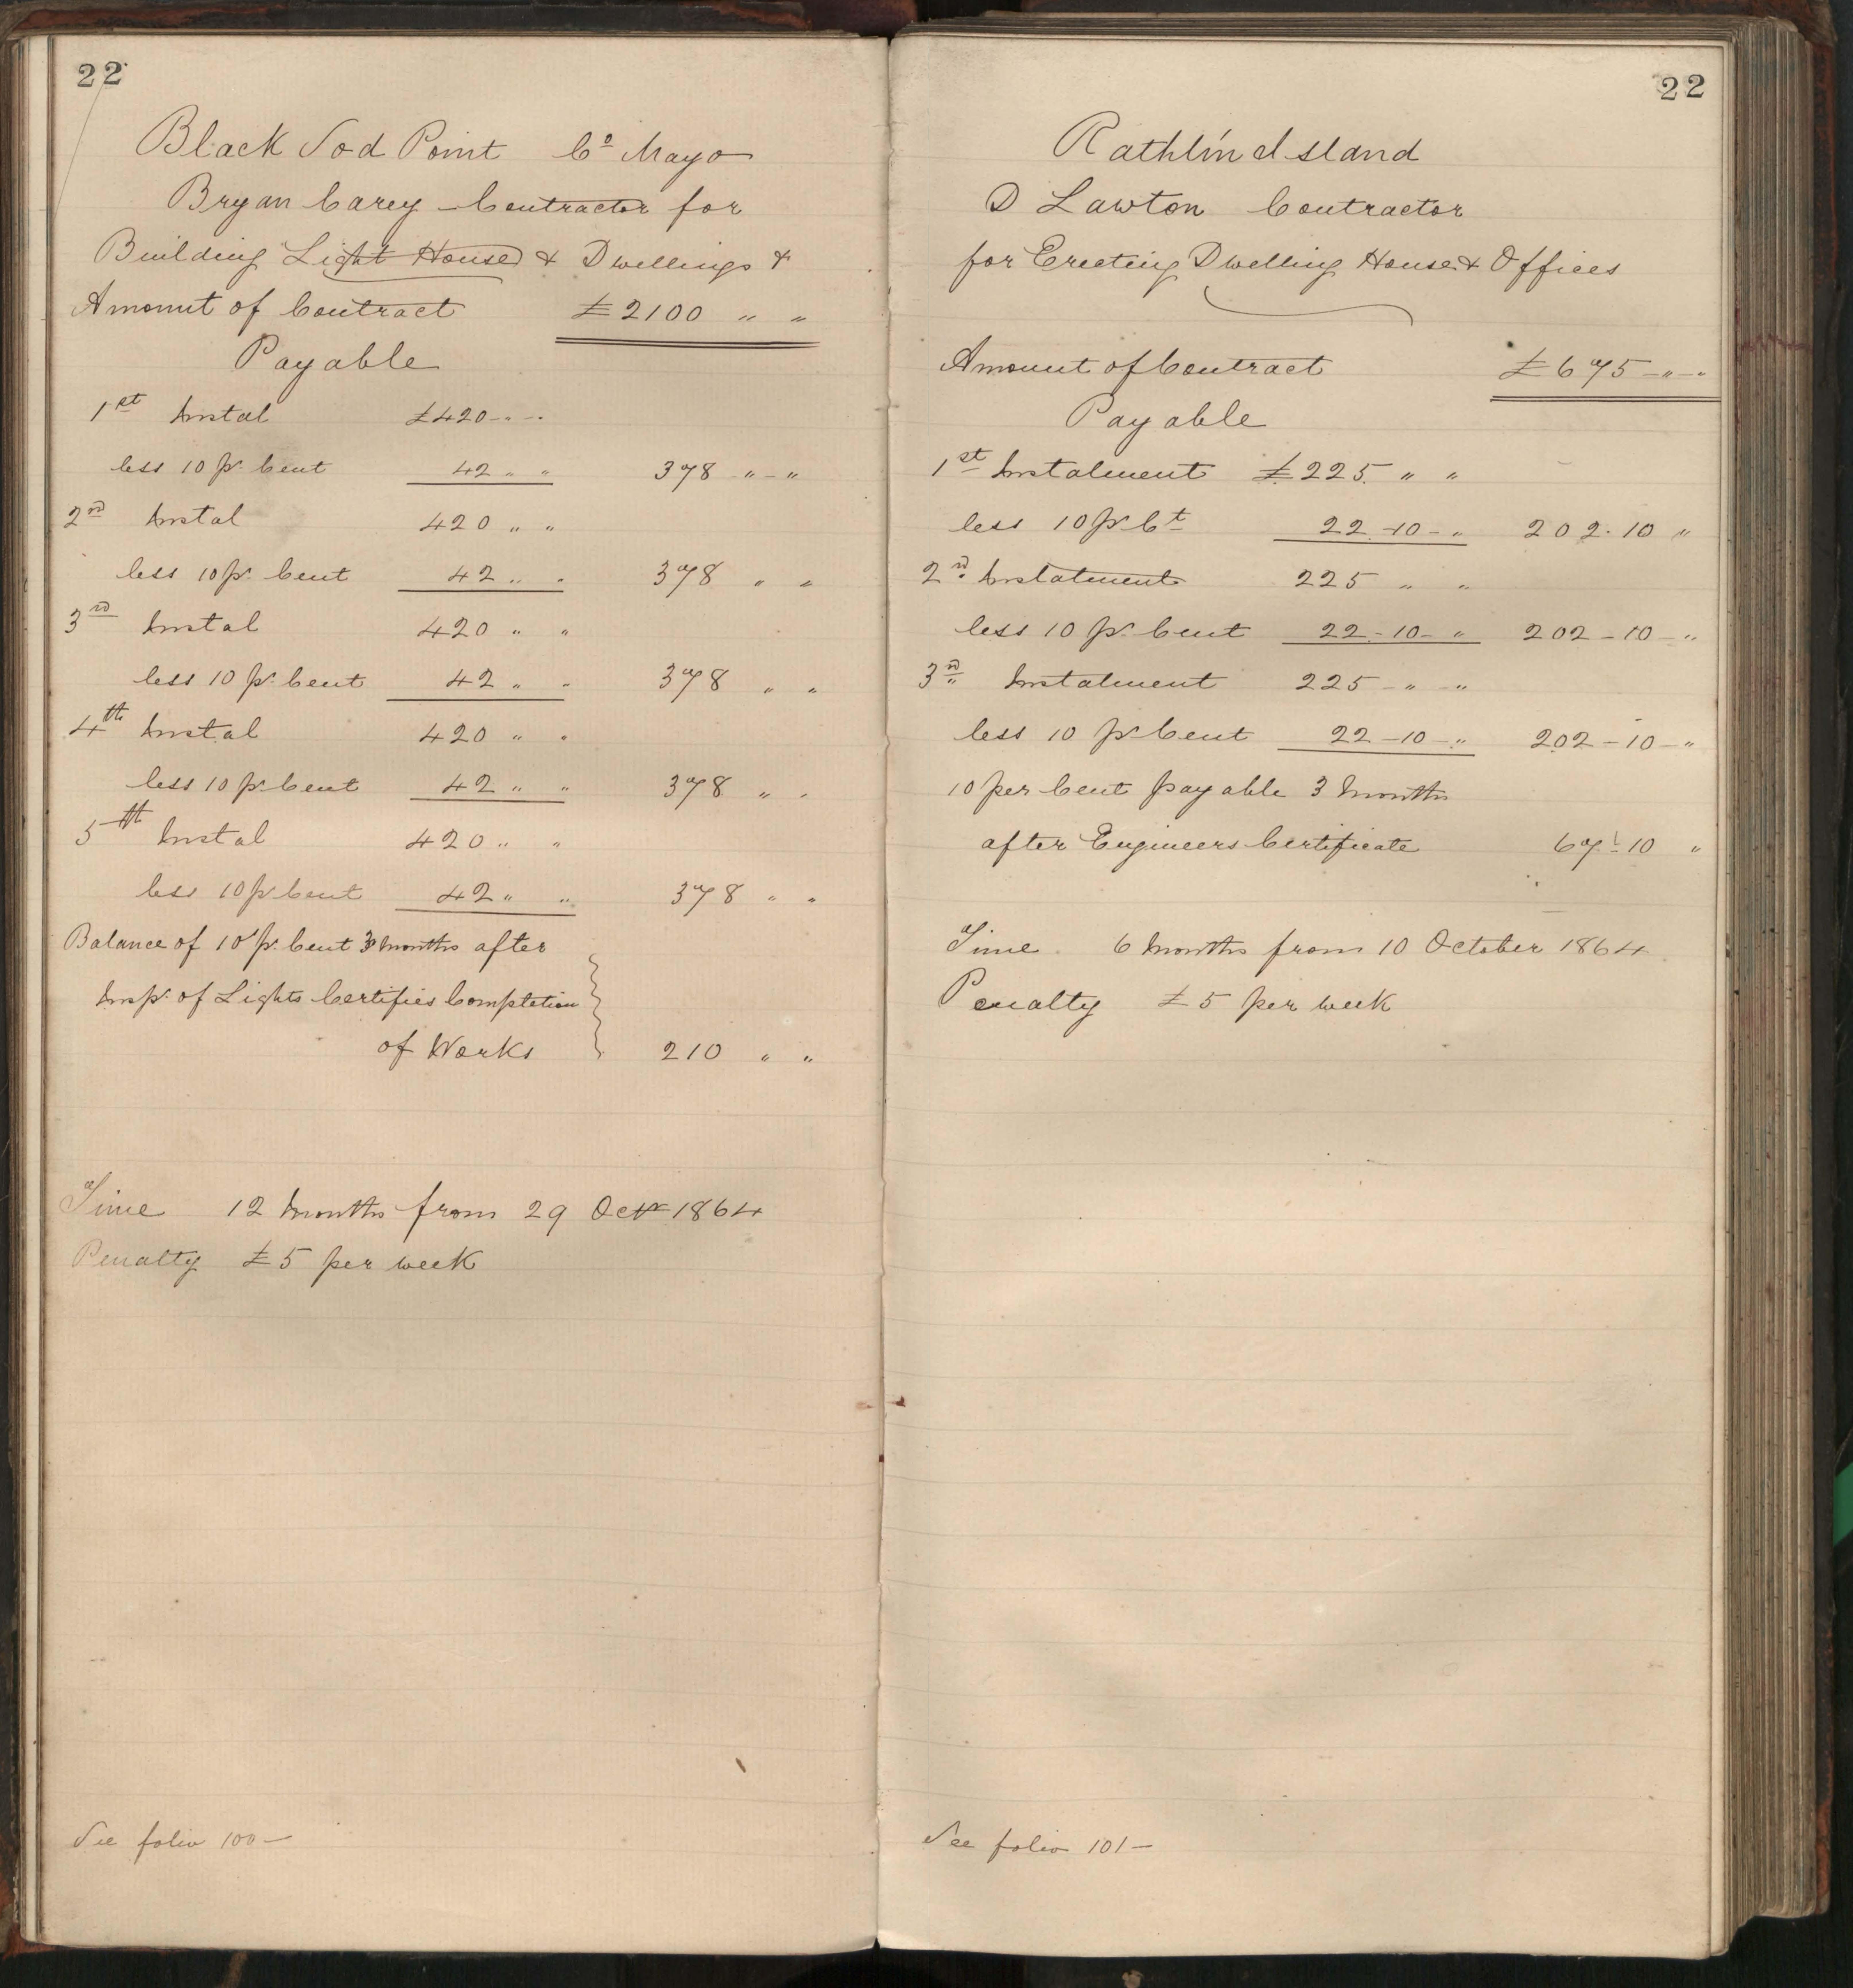 22
Black Sod Point Co Mayo
Bryan Carey Contractor for
Building Light House & Dwellings &
Amount of Contract £2100 " "
Payable
1st Instal £420 - " - "
less 10 pr Cent 42 " " 378 - " - "
2nd Instal 420 " "
less 10 pr Cent 42 " " 378 " "
3rd Instal 420 " "
less 10 pr Cent 42 " " 378 " "
4th Instal 420 " "
less 10 pr Cent 42 " " 378 " "
5th Instal 420 " "
less 10 pr Cent 42 " " 378 " "
Balance of 10 pr Cent 3 Months after
Insp. of Lights Certifies Completion
of Works 210 " "
Time 12 Months from 29 Octr 1864
Penalty £5 per week
See folio 100 -
22
Rathlin Island
D Lawton Contractor
for Erecting Dwelling House & Offices
Amount of Contract £675 - " - "
Payable
1st Instalment £225 " "
less 10 pr Ct 22 - 10 - " 202 . 10 "
2nd Instalment 225 " "
less 10 pr Cent 22 - 10 - " 202 - 10 - "
3rd Instalment 225 - " - "
less 10 pr Cent 22 - 10 - " 202 - 10 - "
10 per Cent payable 3 Months
after Engineers Certificate 67 - 10 "
Time 6 Months from 10 October 1864
Penalty £5 per week
See folio 101 -